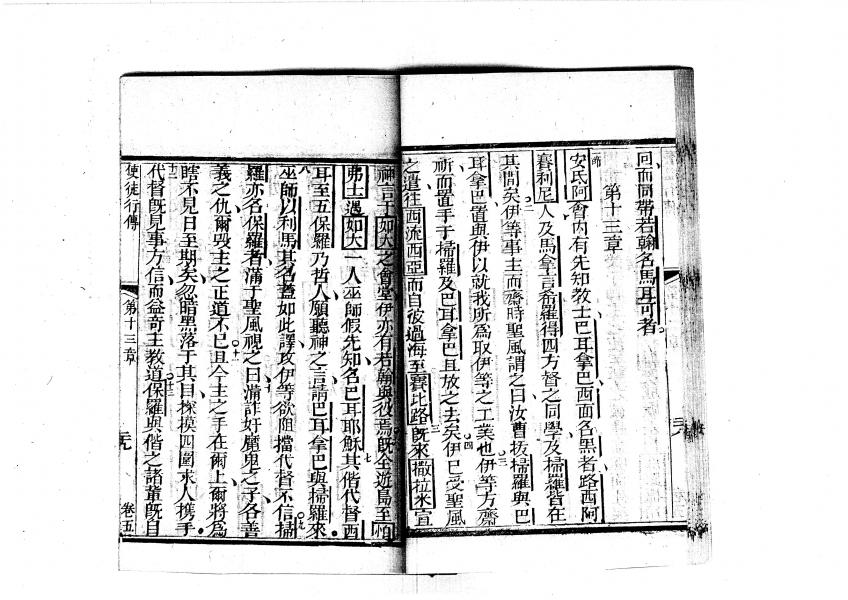 回而同帶若翰名馬耳可者
第十三章
安氏阿會內有先知教士巴耳拿巴西面名黑者路西阿
暮利尼人及馬拿言希羅得四方督之同學及掃羅皆在
其間矣伊等事主而齋時聖風謂之曰汝曹拔掃羅與巴
耳拿巴置與伊以就我所為取伊等之工業也伊等方齋
祈而置手于掃羅及巴耳拿巴且放之去矣伊已受聖風
之遣往西流西亞而自彼過海至賽比路旣來撒拉米宣
神言于如大之會堂伊亦有若翰與彼焉旣全遊島至怕
弗士遇如大一人巫師假先知名巴耳耶穌其偕代督西
耳至五保羅乃哲人願聽神之言請巴耳拿巴與掃羅來
巫師以利馬其名蓋如此譯攻伊等欲阻擋代督不信掃
羅亦名保羅者滿于聖風視之曰滿詐奸魔鬼之子各善
義之仇爾毀主之正道不已且今主之手在爾上爾將為
瞎不見日至期矣忽暗黑落于其目探摸四圍求人携手
代督旣見事方信而益奇主教道保羅與偕之諸輩旣自
使徒行傳
第十三章
卷五